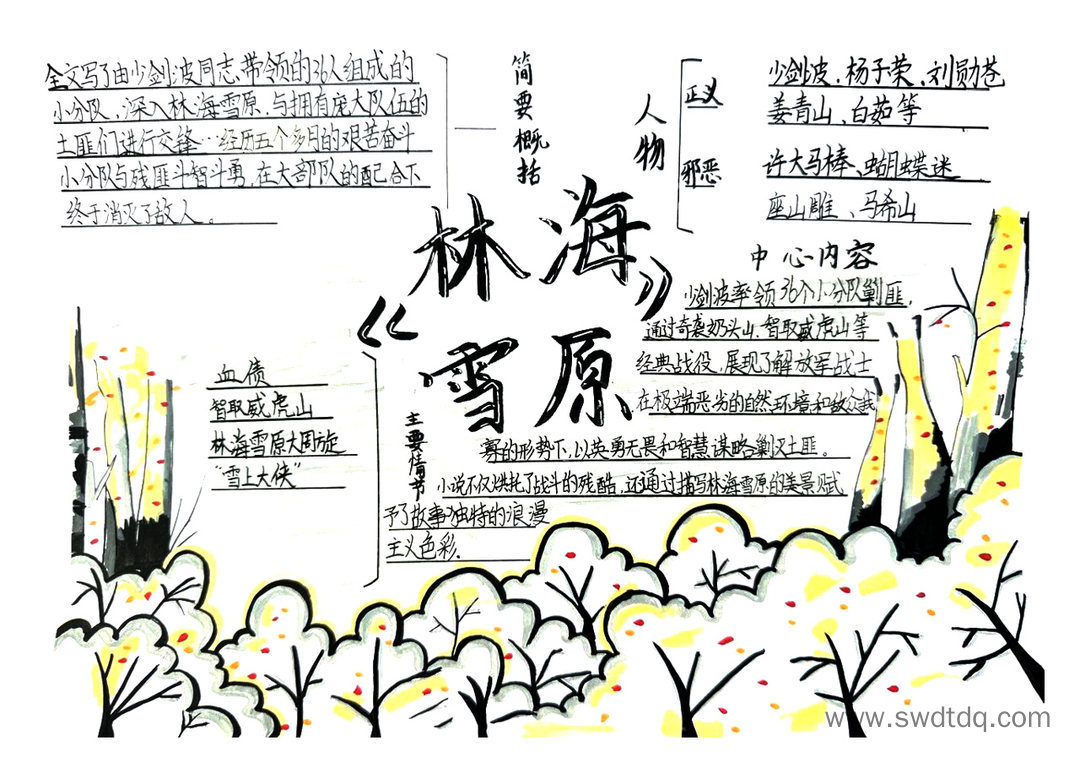 《林海
雪原》
简要概括
全文写了由少剑波同志带领的36人组成的
小分队，深入林海雪原，与拥有庞大队伍的
土匪们进行交锋…经历五个多月的艰苦奋斗
小分队与残匪斗智斗勇，在大部队的配合下
终于消灭了敌人。
人物
正义
少剑波、杨子荣、刘勋苍
姜青山、白茹等
邪恶
许大马棒、蝴蝶迷
座山雕、马希山
中心内容
少剑波率领36个小分队剿匪，
通过奇袭奶头山、智取威虎山等
经典战役，展现了解放军战士
在极端恶劣的自然环境和敌众我
寡的形势下，以英勇无畏和智慧谋略剿灭土匪。
小说不仅烘托了战斗的残酷，还通过描写林海雪原的美景赋
予了故事独特的浪漫
主义色彩.
主要情节
血债
智取威虎山
林海雪原大周旋
“雪上大侠”
www.swdtdq.com